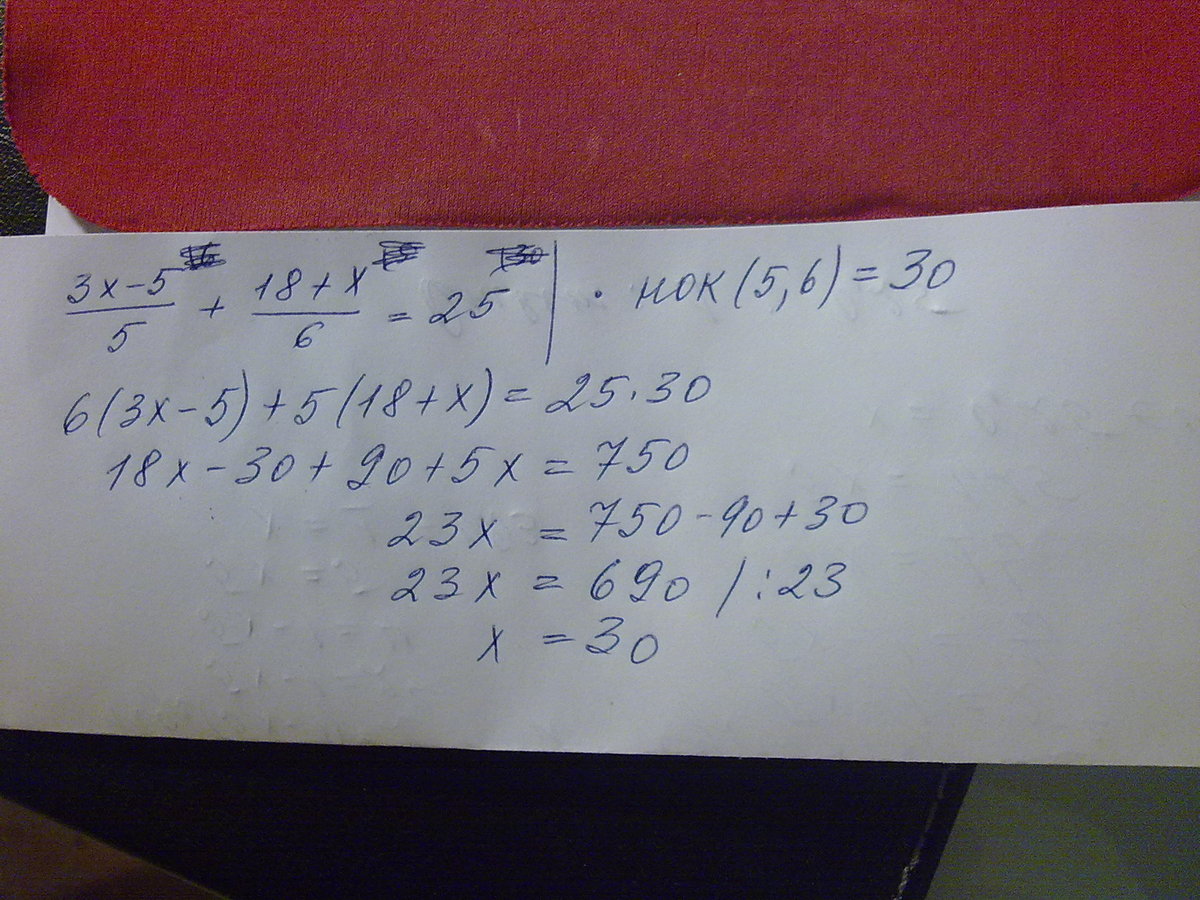 (3x-5)/5 + (18+x)/6 = 25 | · НОК(5,6)=30
6(3x-5)+5(18+x)=25·30
18x-30+90+5x=750
23x=750-90+30
23x=690 /:23
x=30